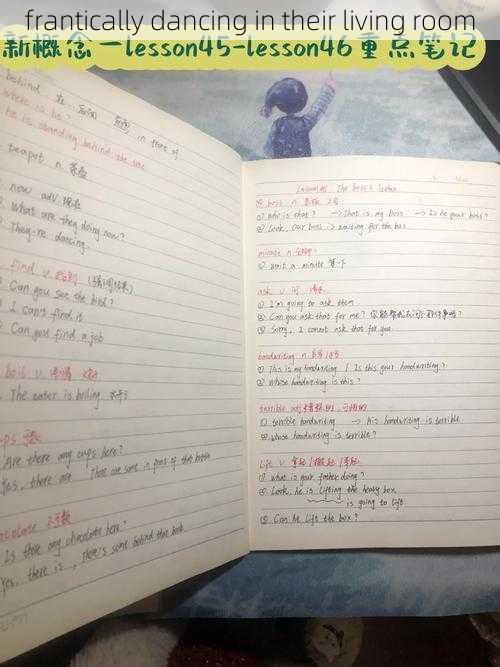 frantically dancing in their living room
新概念一lesson45-lesson46重点笔记
behind 在 后面 in front of
where is he?
he is standing behind the
teapot n. 茶壶
now adv. 现在
What are they doing now?
They're dancing.
find v. 找到
Can you see the bird?
I can't find it
Can you find a job
boil v.
The water is boiling
Are there any cups here?
Yes, there are some in front of that
Is there any chocolate here?
Yes, there is, there's some behind that book
Lesson 45 The boss's letter
boss n. 老板
① who is that? → That is my boss → Is he your boss?
② Look, our boss is waiting for the bus
minute n. 分钟
① wait a minute 等一下
ask v. 问
① I'm going to ask them
② Can you ask that for me?
③ Sorry, I cannot ask that for you.
handwriting n.
① This is my handwriting / Is this your handwriting?
② Whose handwriting is this?
terrible adj
① terrible handwriting → His handwriting is terrible
② whose handwriting is terrible?
lift v.
① what is your father doing?
② Look, he is lifting the heavy box
is going to lift
③ Can he lift the box?